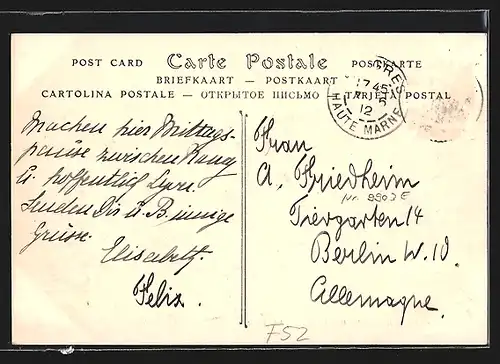 POST CARD Carte Postale POSTKARTE
BRIEFKAART — POSTKAART —
CARTOLINA POSTALE — ОТКРЫТОЕ ПИСЬМО — TARJETA POSTAL
GRES
17 45
5
12
HAUTE MARNE
Machen hier Mittags-
pause zwischen Nancy
u. hoffentlich
Senden Dir u. B. innige
Grüsse.
Elisabeth.
Felix.
Frau
A. Friedheim
Tiergarten 14
Berlin W. 10
Allemagne.
F52